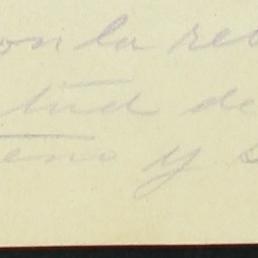 on la re
tud de
eno y s